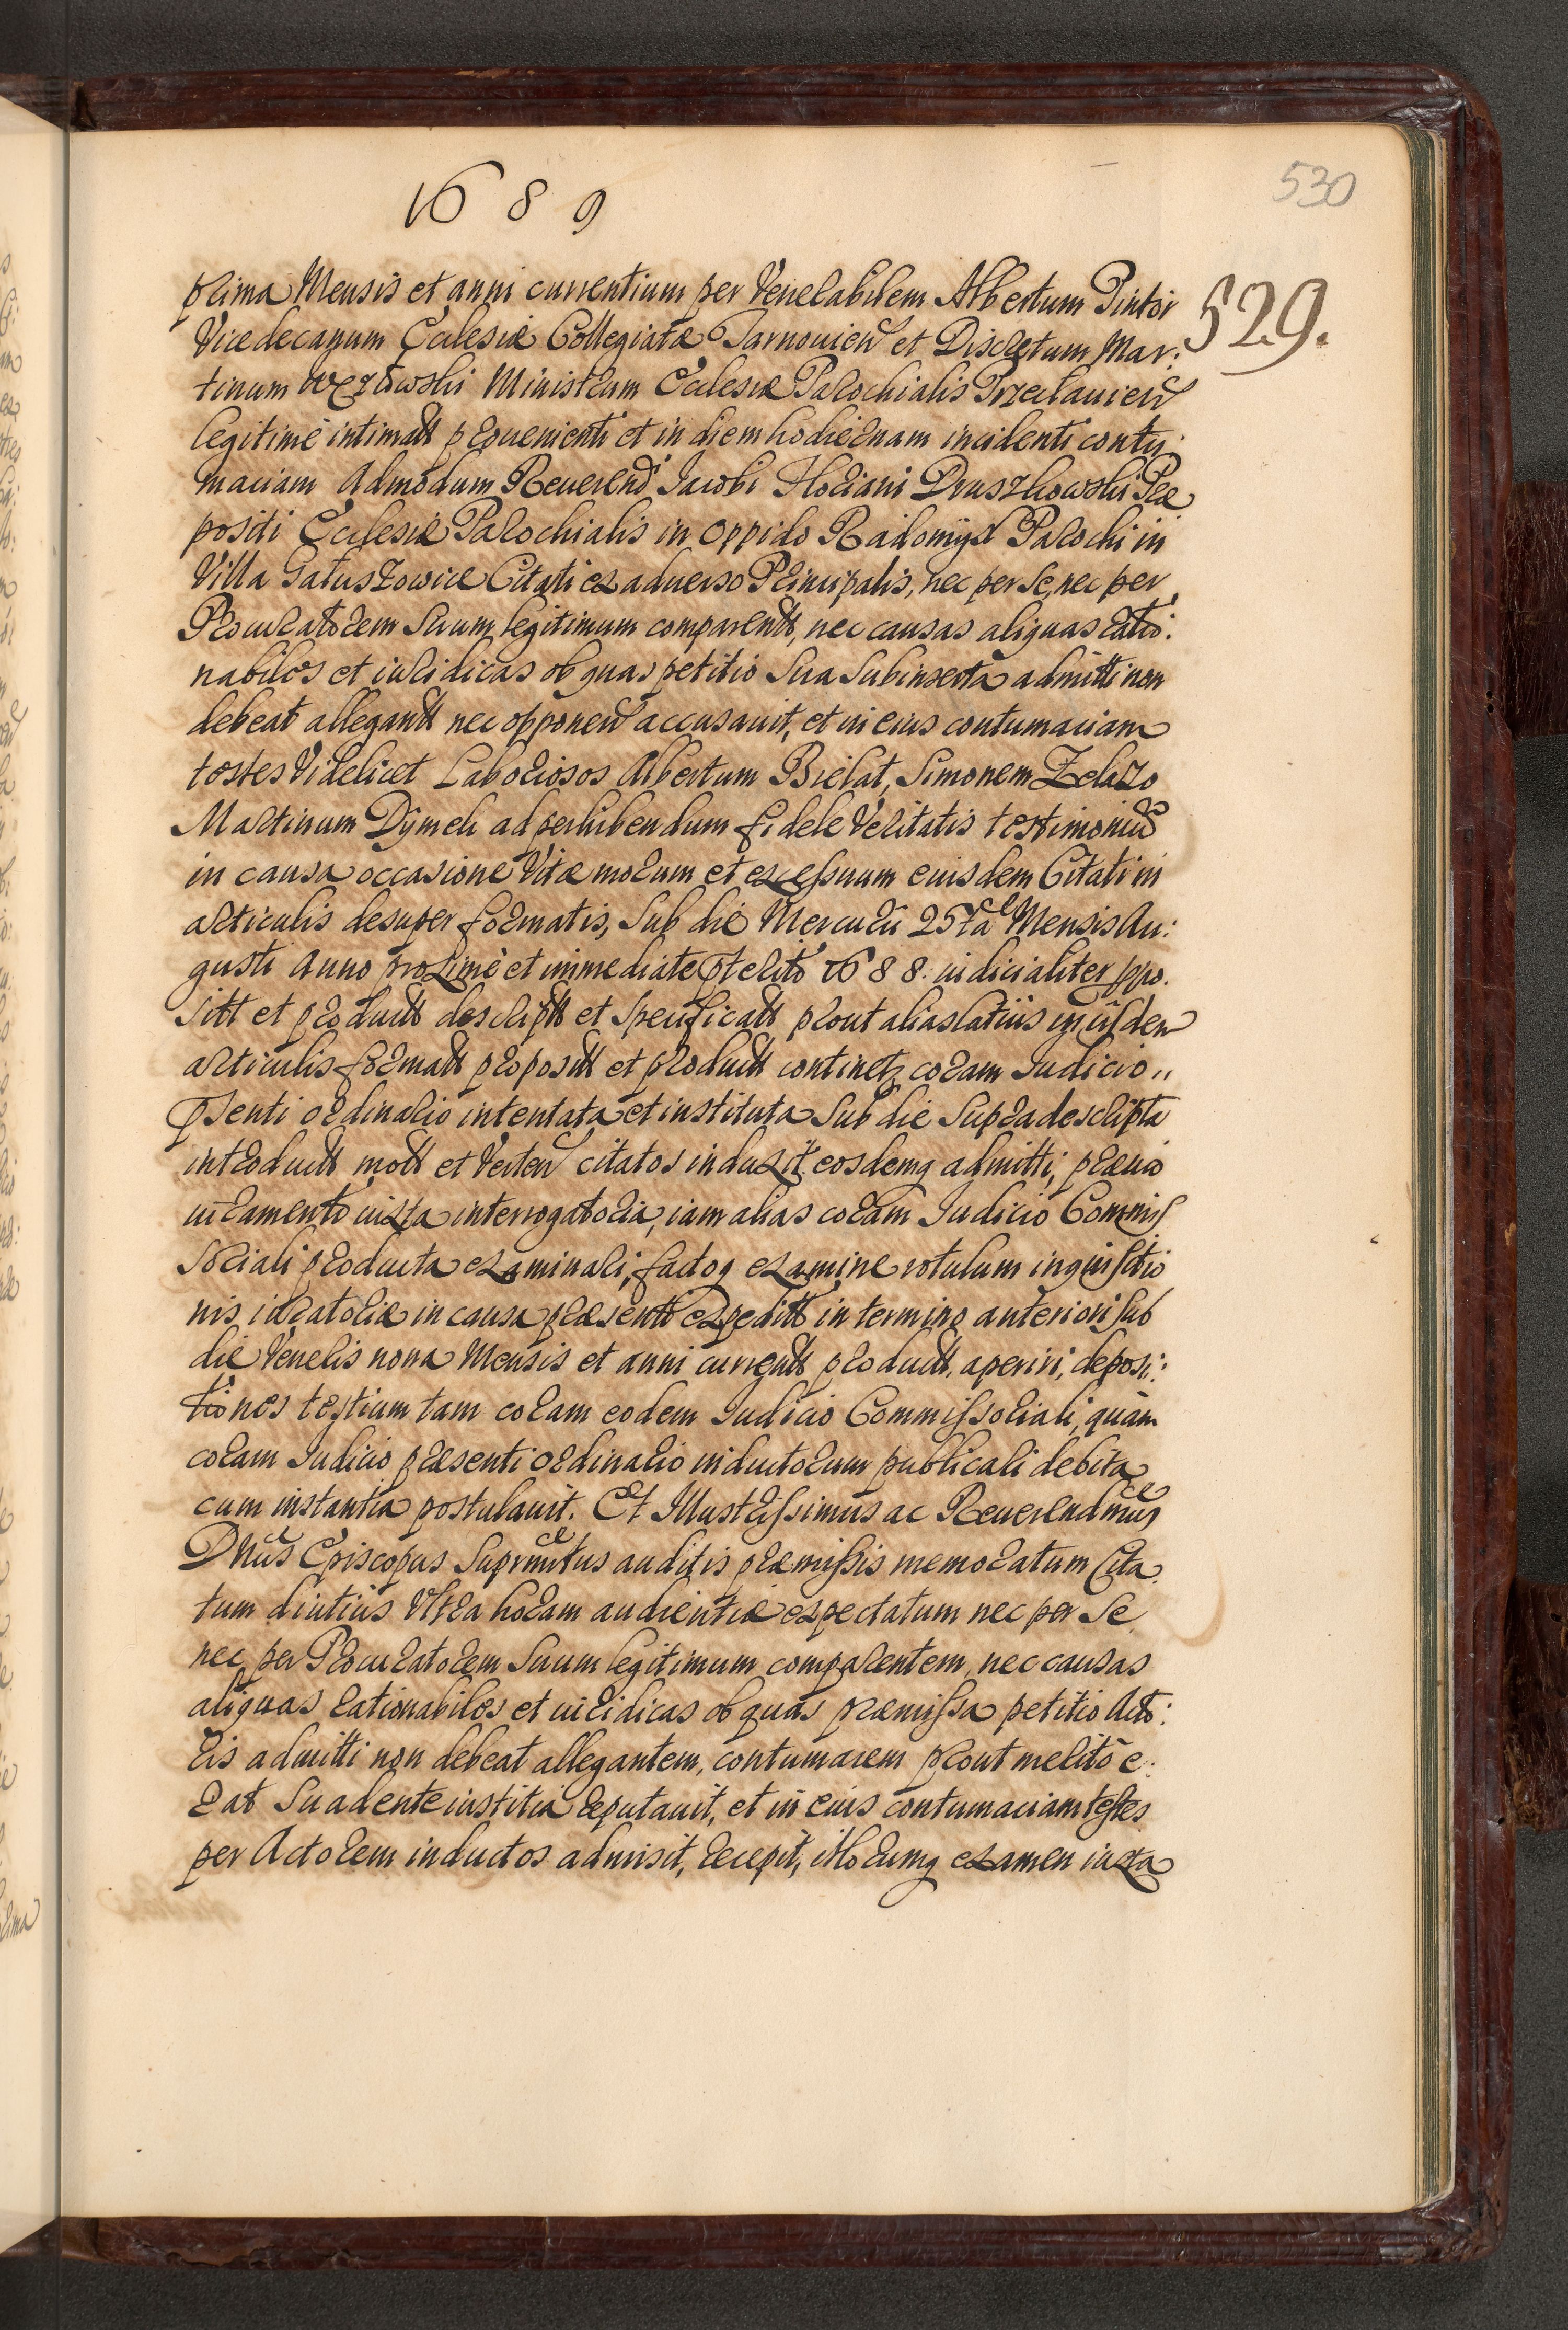 1689
530
529.
prima Mensis et anni currentium per Venerabilem Albertum Pintor
Vicedecanum Ecclesiæ Collegiatæ Tarnovien et Discretum Mar:
tinum Węzowski Ministrum Ecclesiæ Parochialis Przecłavien
legitime intimatt provenienti et in diem hodiernam incidenti contu:
maciam Admodum Reverendi Jacobi Floriani Druszkowski Præ
positi Ecclesiæ Parochialis in oppido Radomysl Parochi in
Villa Gatuszowice Citati ex adverso Principalis, nec per Se, nec per
Procuratorem Suum legitimum comparentt, nec causas aliquas ratio:
nabiles et iuridicas ob quas petitio Sua Subinserta admitti non
debeat allegantt nec opponen accusavit, et in eius contumaciam
testes Videlicet Laboriosos Albertum Bielat, Simonem Zelazo
Martinum Dymek ad perhibendum fidele Veritatis testimoniū
in causa occasione Vitæ morum et excessuum eiusdem Citati in
articulis desuper formatis, Sub die Mercurii 25ta Mensis Au:
gusti Anno proxime et immediate pterito 1688. iudicialiter ppo.
sitt et productt descriptt et specificatt prout alias latius in iisdem
articulis formatt propositt et productt continetz coram Iudicio "
psenti ordinario intentata et instituta Sub die Supradescripta
introductt mott et Verten citatos induxit eosdemq admitti, prævio
iuramento iuxta interrogatoria, iam alias coram Iudicio Commis
soriali producta examinari, factoq examine rotulum inquisitio
nis iuratoriæ in causa præsentt expeditt in termino anteriori sub
die Veneris nona Mensis et anni currentt productt, aperiri, deposi:
tiones testium tam coram eodem Iudicio Commissoriali, quam
coram Iudicio præsenti ordinario inductorum publicari debita
cum instantia postulavit. Et Illustrissimus ac Reverendmus
Dnus Episcopus Supranrtus auditis præmissis memoratum Cita.
tum diutius Ultra horam audientiæ expectatum nec per Se
nec per Procuratorem Suum legitimum comparentem, nec causas
aliquas rationabiles et iuridicas ob quas præmissa petitio Acto:
ris admitti non debeat allegantem, contumacem prout merito e:
rat Suadente iustitia reputavit, et in eius contumaciam testes
per Actorem inductos admisit, recepit, illorumq examen iuxta